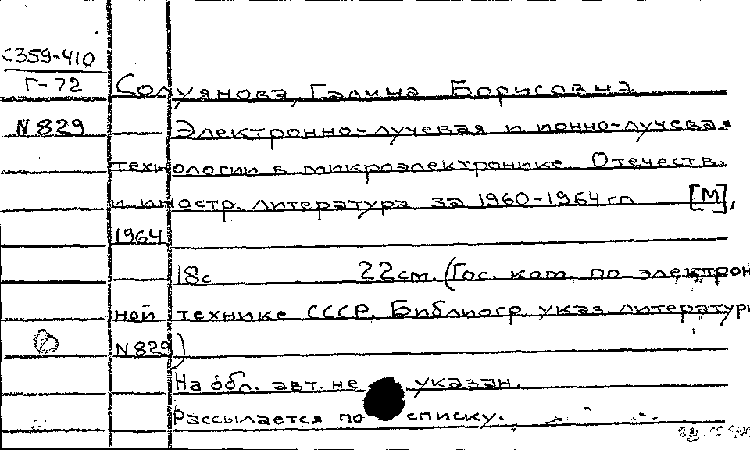 С359-410
Г-72
Солуянова, Галина Борисовна
N 829
Электронно-лучевая и ионно-лучевая
технологии в микроэлектронике. Отечеств.
и иностр. литература за 1960-1964 гг. [М],
1964
18с 22см. (Гос. ком. по электрон
ной технике СССР. Библиогр. указ. литературы
N 829)
На обл. авт. не указан.
Рассылается по списку.